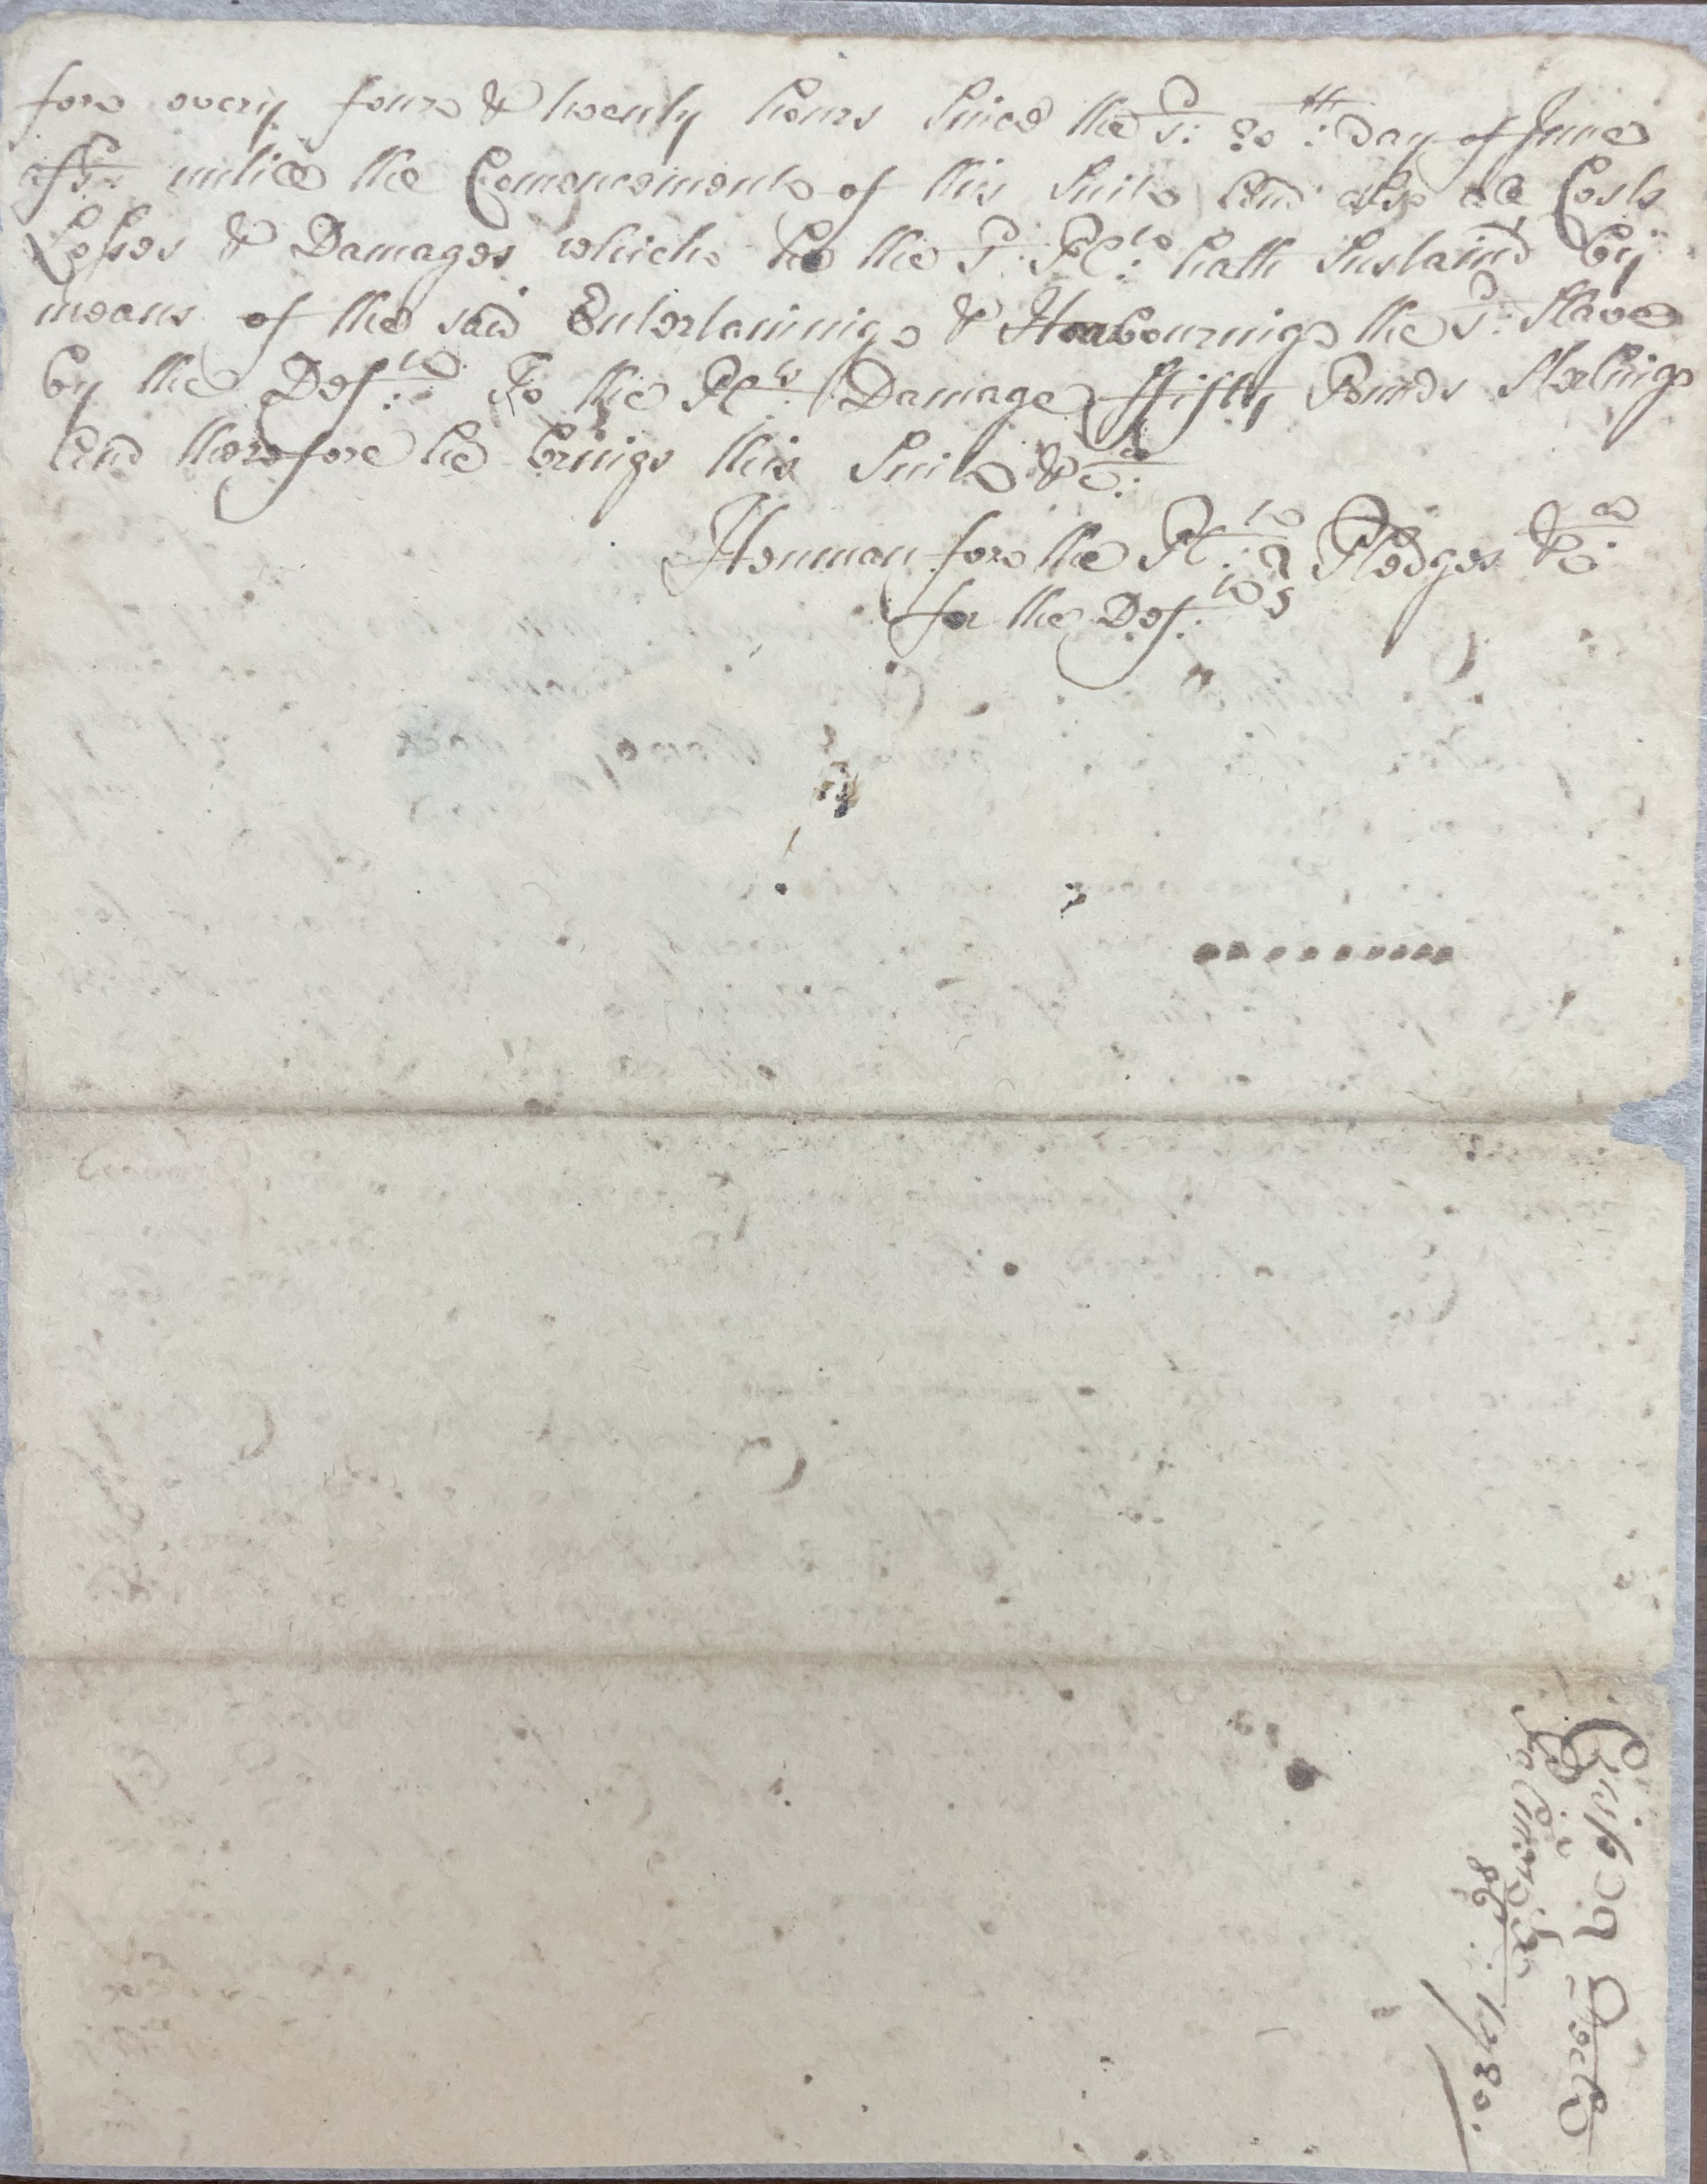 fore every foure & twenty hours Since the S:^d 20:^th Day of June
afs:^d untill the Comencement of this Suite And also all Costs
Losses & Damages which he the S:^d Pl:^te hath Sustain'd by
means of the said Entertaininge & Harbouringe the S:^d Slave
by the Def:^te To the Pl:^ts Damage ffifty Pounds Sterlinge
And therefore he brings this Suite &c:^a
Henman fore the Pl:^te } Pledges &c:^a
for the Def:^te
1730.